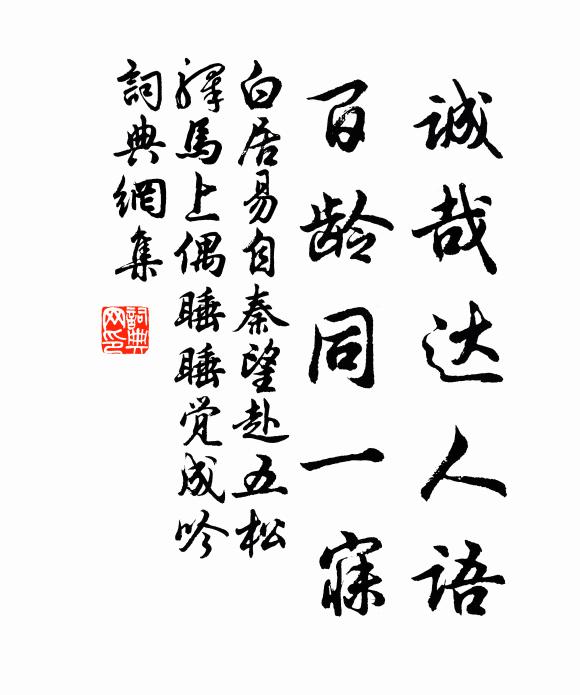 诚哉达人语
百龄同一寐
白居易自秦望赴五松
驛馬上偶睡睡觉成吟
詞典網集
詞典网印